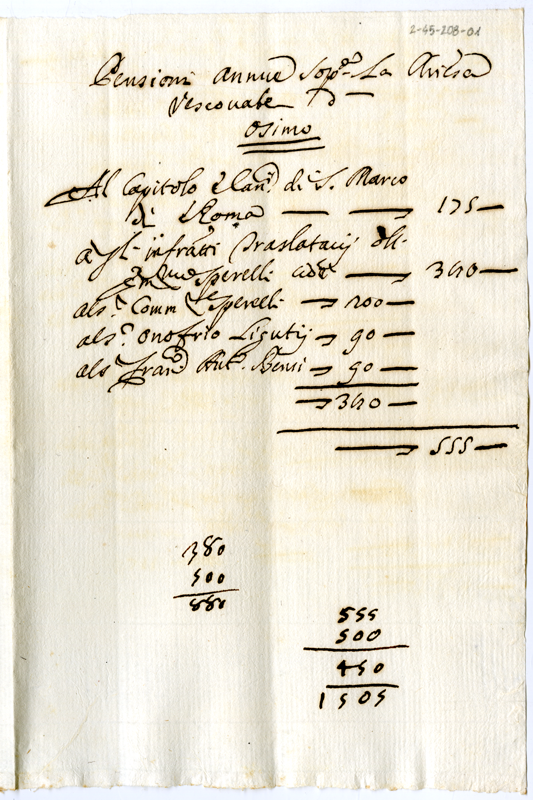 2-45-208-01
Pensioni Annue sop.ª La Chiesa
Vescovale d
Osimo
Al Capitolo e Can.ci di S. Marco
di Roma — 175 —
agl' infratti Traslatarij dell'
Em Sperelli cioè — 380 —
al s.r Comm Sperelli — 200 —
al s.r Onofrio Ligutij — 90 —
al s.r Fran.co Ant.o Bensi — 90 —
— 380 —
— 555 —
380
500
880
555
500
450
1505